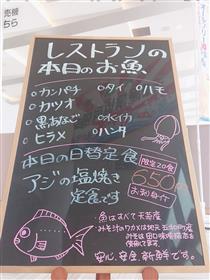 売機
ちら
レストランの
本日のお魚
○カンパチ ○タイ ○ハモ
○カツオ
○黒あなご ○水イカ
○ヒラメ ○ハンタ
本日の日替定食 限定20食
アジの塩焼き
定食です
650
お刺身付
・魚はすべて天草産
・みそ汁のワカメは地元
安心、安全、新鮮です。